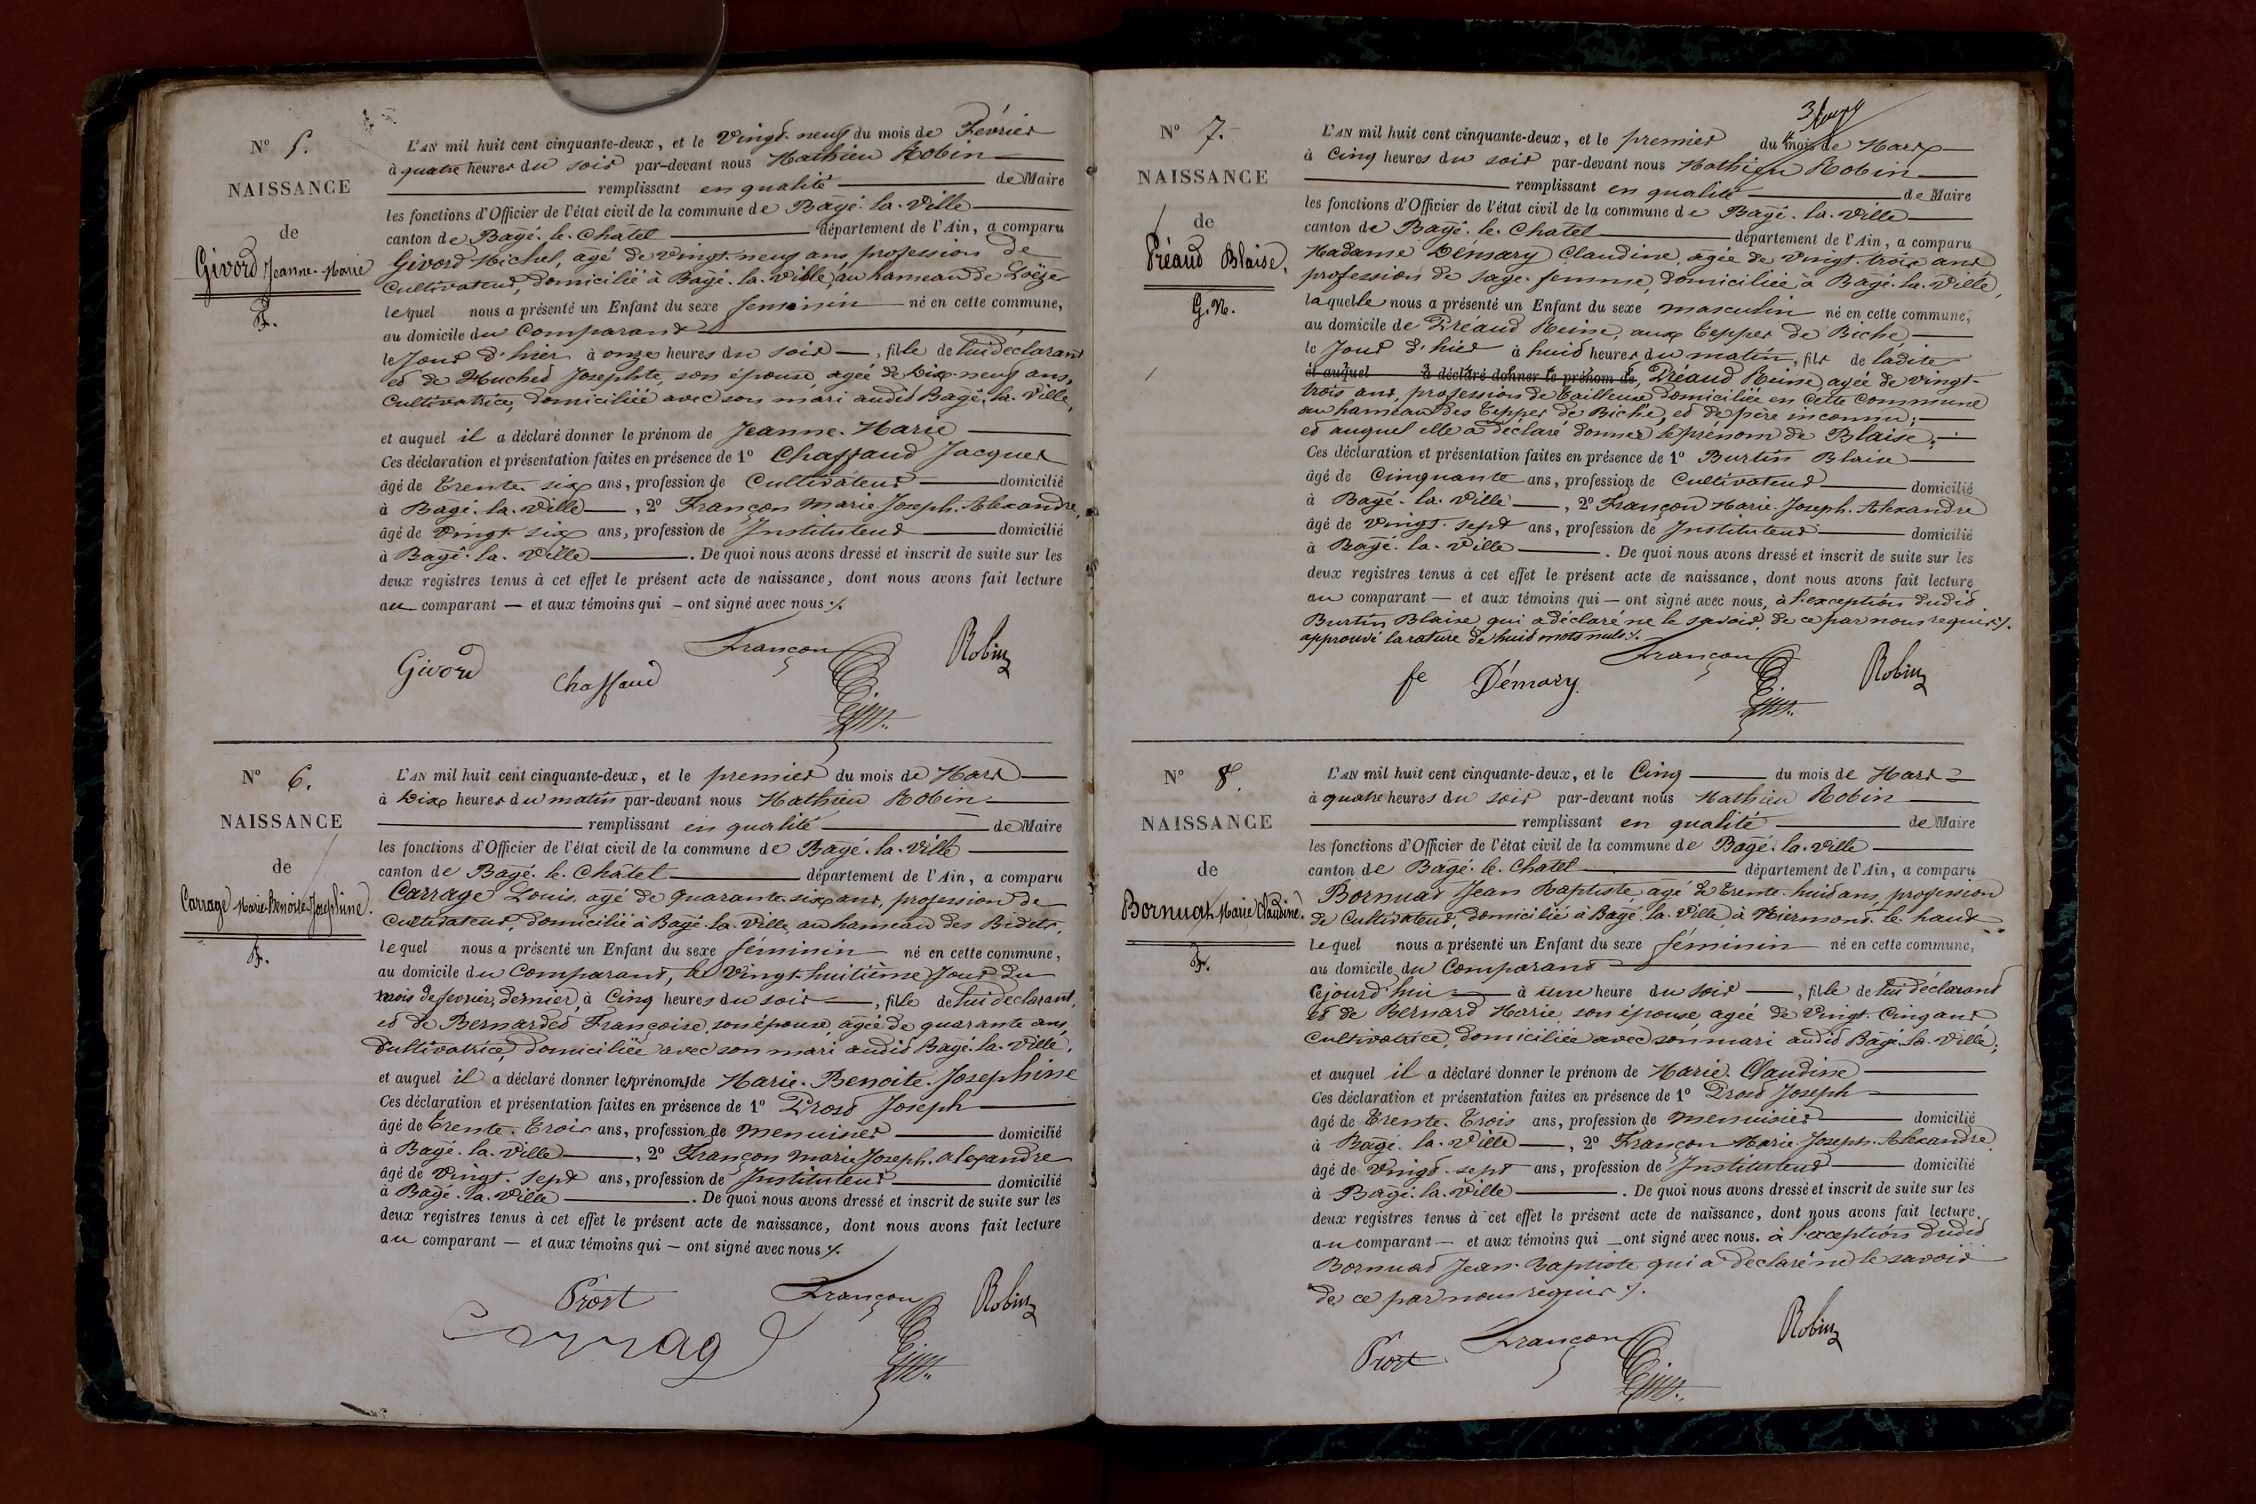 N° 5.
NAISSANCE
de
Givord Jeanne-Marie
F.
L'AN mil huit cent cinquante-deux, et le vingt-neuf du mois de Février
à quatre heures du soir par-devant nous Mathieu Robin
remplissant en qualité de Maire
les fonctions d'Officier de l'état civil de la commune de Bagé-la-Ville
canton de Bagé-le-Châtel département de l'Ain, a comparu
Givord Michel, agé de vingt-neuf ans, profession de
Cultivateur, domicilié à Bagé-la-Ville, au hameau de Loëze
lequel nous a présenté un Enfant du sexe feminin né en cette commune,
au domicile du Comparant
le Jour d'hier à onze heures du soir, fille de lui déclarant
et de Huchet Josephte, son épouse, agée de Dix-neuf ans,
Cultivatrice, domiciliée avec son mari audit Bagé-la-Ville,
et auquel il a déclaré donner le prénom de Jeanne-Marie
Ces déclaration et présentation faites en présence de 1° Chaffaud Jacques
âgé de Trente-six ans, profession de Cultivateur domicilié
à Bagé-la-Ville, 2° Françon Marie Joseph-Alexandre,
âgé de vingt-six ans, profession de Instituteur domicilié
à Bagé-la-Ville. De quoi nous avons dressé et inscrit de suite sur les
deux registres tenus à cet effet le présent acte de naissance, dont nous avons fait lecture
au comparant — et aux témoins qui — ont signé avec nous ./.
Givord Chaffaud Françon Robin
N° 6.
NAISSANCE
de
Carrage Marie-Benoite-Josephine.
F.
L'AN mil huit cent cinquante-deux, et le premier du mois de Mars
à Dix heures du matin par-devant nous Mathieu Robin
remplissant en qualité de Maire
les fonctions d'Officier de l'état civil de la commune de Bagé-la-Ville
canton de Bagé-le-Châtel département de l'Ain, a comparu
Carrage Louis, agé de quarante-six ans, profession de
Cultivateur, domicilié à Bagé-la-Ville, au hameau des Bedets,
lequel nous a présenté un Enfant du sexe féminin né en cette commune,
au domicile du Comparant, le vingt-huitième Jour du
mois de fevrier dernier, à Cinq heures du soir, fille de lui déclarant,
et de Bernardet Françoise, son épouse, agée de quarante ans,
Cultivatrice, domiciliée avec son mari audit Bagé-la-Ville,
et auquel il a déclaré donner les prénoms de Marie-Benoite-Josephine
Ces déclaration et présentation faites en présence de 1° Prost Joseph
âgé de Trente-Trois ans, profession de menuisier domicilié
à Bagé-la-Ville, 2° Françon Marie Joseph-Alexandre
âgé de vingt-sept ans, profession de Instituteur domicilié
à Bagé-la-Ville. De quoi nous avons dressé et inscrit de suite sur les
deux registres tenus à cet effet le présent acte de naissance, dont nous avons fait lecture
au comparant — et aux témoins qui — ont signé avec nous ./.
Prost Françon Robin
Carrage
N° 7.
NAISSANCE
de
Préaud Blaise.
G.N.
L'AN mil huit cent cinquante-deux, et le premier du mois de Mars
à Cinq heures du soir par-devant nous Mathieu Robin
remplissant en qualité de Maire
les fonctions d'Officier de l'état civil de la commune de Bagé-la-Ville
canton de Bagé-le-Chatel département de l'Ain, a comparu
Madame Démary Claudine, agée de vingt-trois ans
profession de sage-femme, domiciliée à Bagé-la-Ville,
laquelle nous a présenté un Enfant du sexe masculin né en cette commune,
au domicile de Préaud Reine, aux Tepper de Biche
le Jour d'hier à huit heures du matin, fils de ladite
et auquel a déclaré donner le prénom de, Préaud Reine agée de vingt-
trois ans, profession de Tailleuse, domiciliée en cette Commune
au hameau des Tepper de Biche, et de père inconnu;
et auquel elle a déclaré donner le prénom de Blaise,
Ces déclaration et présentation faites en présence de 1° Burtin Blaise
âgé de Cinquante ans, profession de Cultivateur domicilié
à Bagé-la-Ville, 2° Françon Marie-Joseph-Alexandre
âgé de vingt-sept ans, profession de Instituteur domicilié
à Bagé-la-Ville. De quoi nous avons dressé et inscrit de suite sur les
deux registres tenus à cet effet le présent acte de naissance, dont nous avons fait lecture
au comparant — et aux témoins qui — ont signé avec nous, à l'exception dudit
Burtin Blaise, qui a déclaré ne le savoir, de ce par nous requis ./.
approuvé la rature de huit mots nuls ./.
fe Démary. Françon Robin
N° 8.
NAISSANCE
de
Bornuat Marie Claudine.
F.
L'AN mil huit cent cinquante-deux, et le Cinq du mois de Mars
à quatre heures du soir par-devant nous Mathieu Robin
remplissant en qualité de Maire
les fonctions d'Officier de l'état civil de la commune de Bagé-la-Ville
canton de Bagé-le-Chatel département de l'Ain, a comparu
Bornuat Jean Baptiste, agé de Trente-huit ans, profession
de Cultivateur, domicilié à Bagé-la-Ville, à Niermont-le-haut
lequel nous a présenté un Enfant du sexe féminin né en cette commune,
au domicile du Comparant
cejourd'hui à une heure du soir, fille de lui déclarant
et de Bernard Marie, son épouse, agée de vingt-Cinq ans
Cultivatrice, domiciliée avec son mari audit Bagé-la-Ville;
et auquel il a déclaré donner le prénom de Marie-Claudine
Ces déclaration et présentation faites en présence de 1° Prost Joseph
âgé de Trente-Trois ans, profession de menuisier domicilié
à Bagé-la-Ville, 2° Françon Marie Joseph-Alexandre
âgé de vingt-sept ans, profession de Instituteur domicilié
à Bagé-la-Ville. De quoi nous avons dressé et inscrit de suite sur les
deux registres tenus à cet effet le présent acte de naissance, dont nous avons fait lecture,
au comparant — et aux témoins qui — ont signé avec nous, à l'exception dudit
Bornuat Jean-Baptiste qui a déclaré ne le savoir
de ce par nous requis ./.
Prost Françon Robin